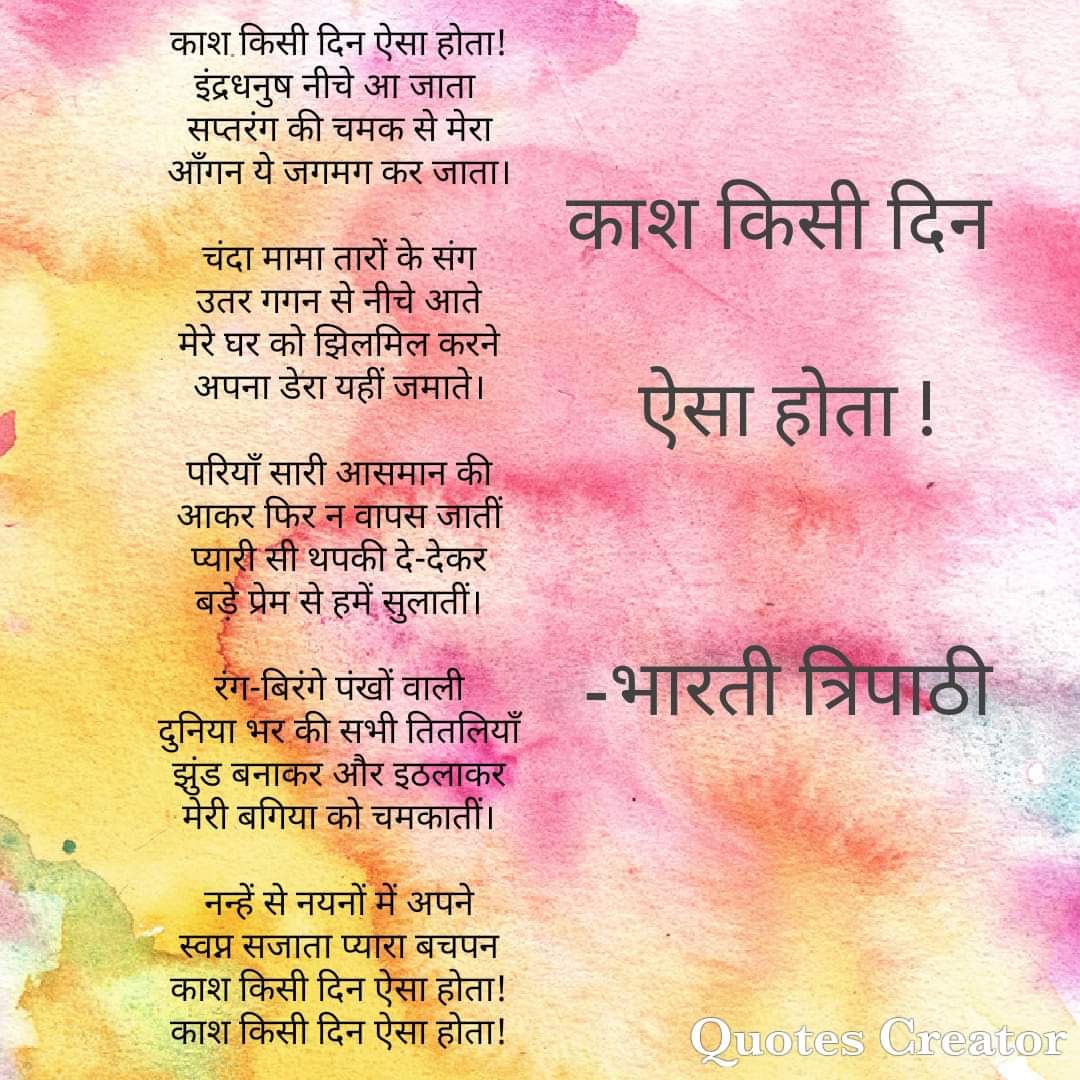 काश किसी दिन ऐसा होता!
इंद्रधनुष नीचे आ जाता
सप्तरंग की चमक से मेरा
आँगन ये जगमग कर जाता।

चंदा मामा तारों के संग
उतर गगन से नीचे आते
मेरे घर को झिलमिल करने
अपना डेरा यहीं जमाते।

परियाँ सारी आसमान की
आकर फिर न वापस जातीं
प्यारी सी थपकी दे-देकर
बड़े प्रेम से हमें सुलातीं।

रंग-बिरंगे पंखों वाली
दुनिया भर की सभी तितलियाँ
झुंड बनाकर और इठलाकर
मेरी बगिया को चमकातीं।

नन्हें से नयनों में अपने
स्वप्न सजाता प्यारा बचपन
काश किसी दिन ऐसा होता!
काश किसी दिन ऐसा होता!

काश किसी दिन
ऐसा होता !
-भारती त्रिपाठी
Quotes Creator